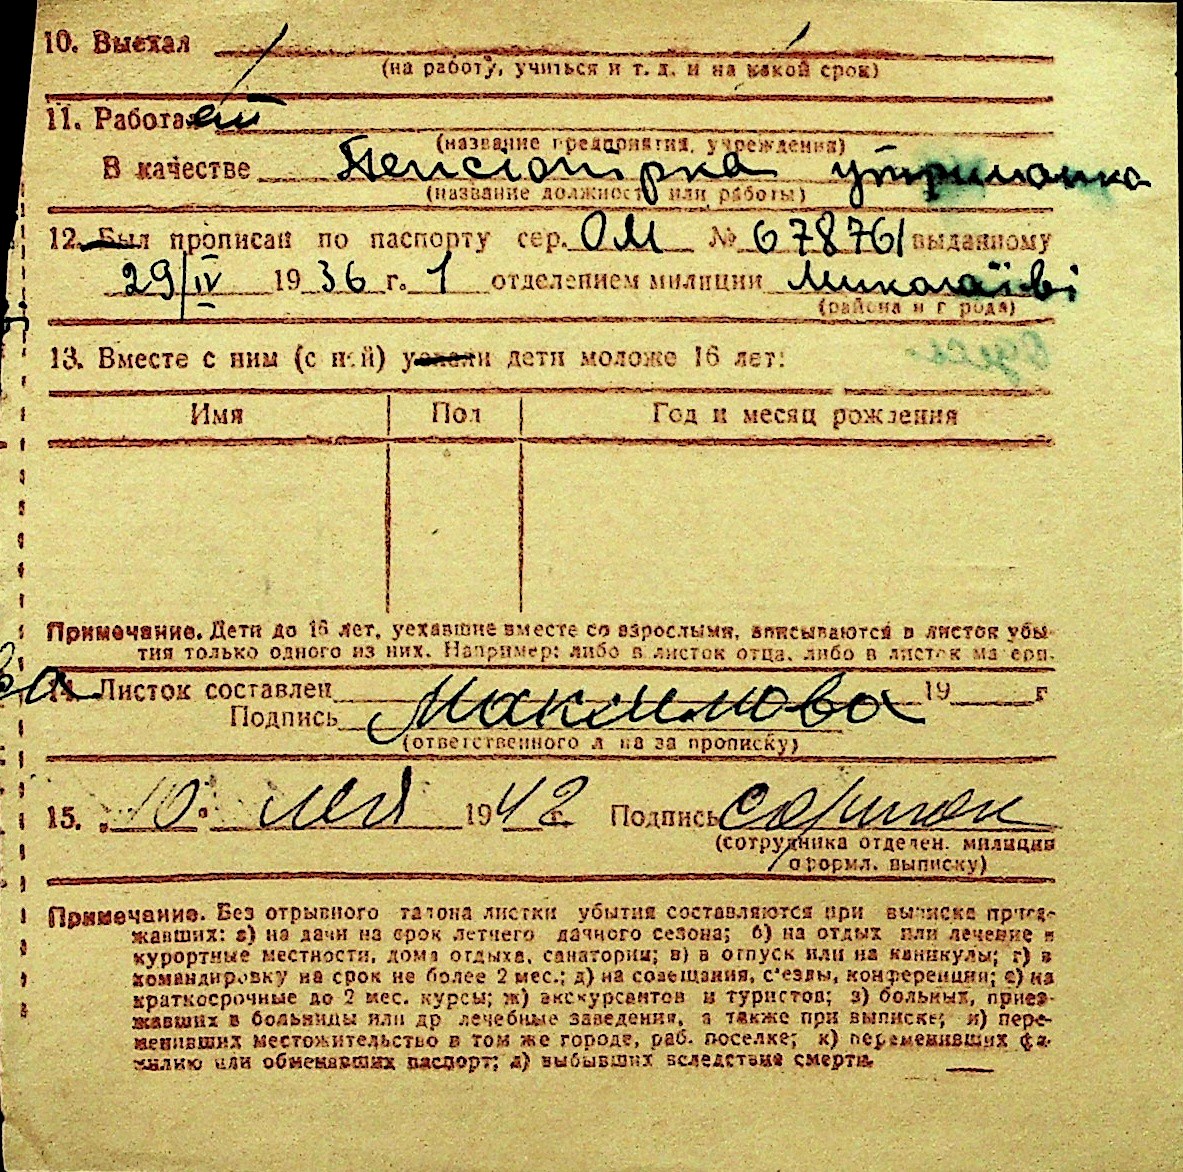 10. Выехал
(на работу, учиться и т. д. и на какой срок)
11. Работает
(название предприятия, учреждения)
В качестве Пенсіонірка утриманка
(название должност или работы)
12. Был прописан по паспорту сер. ОМ № 678761 выданному
29/IV 1936 г. 1 отделением милиции Миколаїві
(района и г рода)
13. Вместе с ним (с ней) уехали дети моложе 16 лет:
Имя Пол Год и месяц рождения
Примечание. Дети до 16 лет, уехавшие вместе со взрослыми, вписываются в листок убы-
тия только одного из них. Например: либо в листок отца, либо в листок ма ери.
14. Листок составлен 19 г
Подпись Максимова
(ответственного л ца за прописку)
15. 10 мая 1942 г. Подпись
(сотрудника отделен. милиции
оформл. выписку)
Примечание. Без отрывного талона листки убытия составляются при выписке приез-
жавших: а) на дачи на срок летнего дачного сезона; б) на отдых или лечение в
курортные местности, дома отдыха, санатории; в) в отпуск или на каникулы; г) в
командировку на срок не более 2 мес.; д) на совещания, с'езды, конференции; е) на
краткосрочные до 2 мес. курсы; ж) экскурсантов и туристов; з) больных, приез-
жавших в больницы или др лечебные заведения, а также при выписке; и) пере-
менивших местожительство в том же городе, раб. поселке; к) переменивших фа-
милию или обменявших паспорт; л) выбывших вследствие смерти.